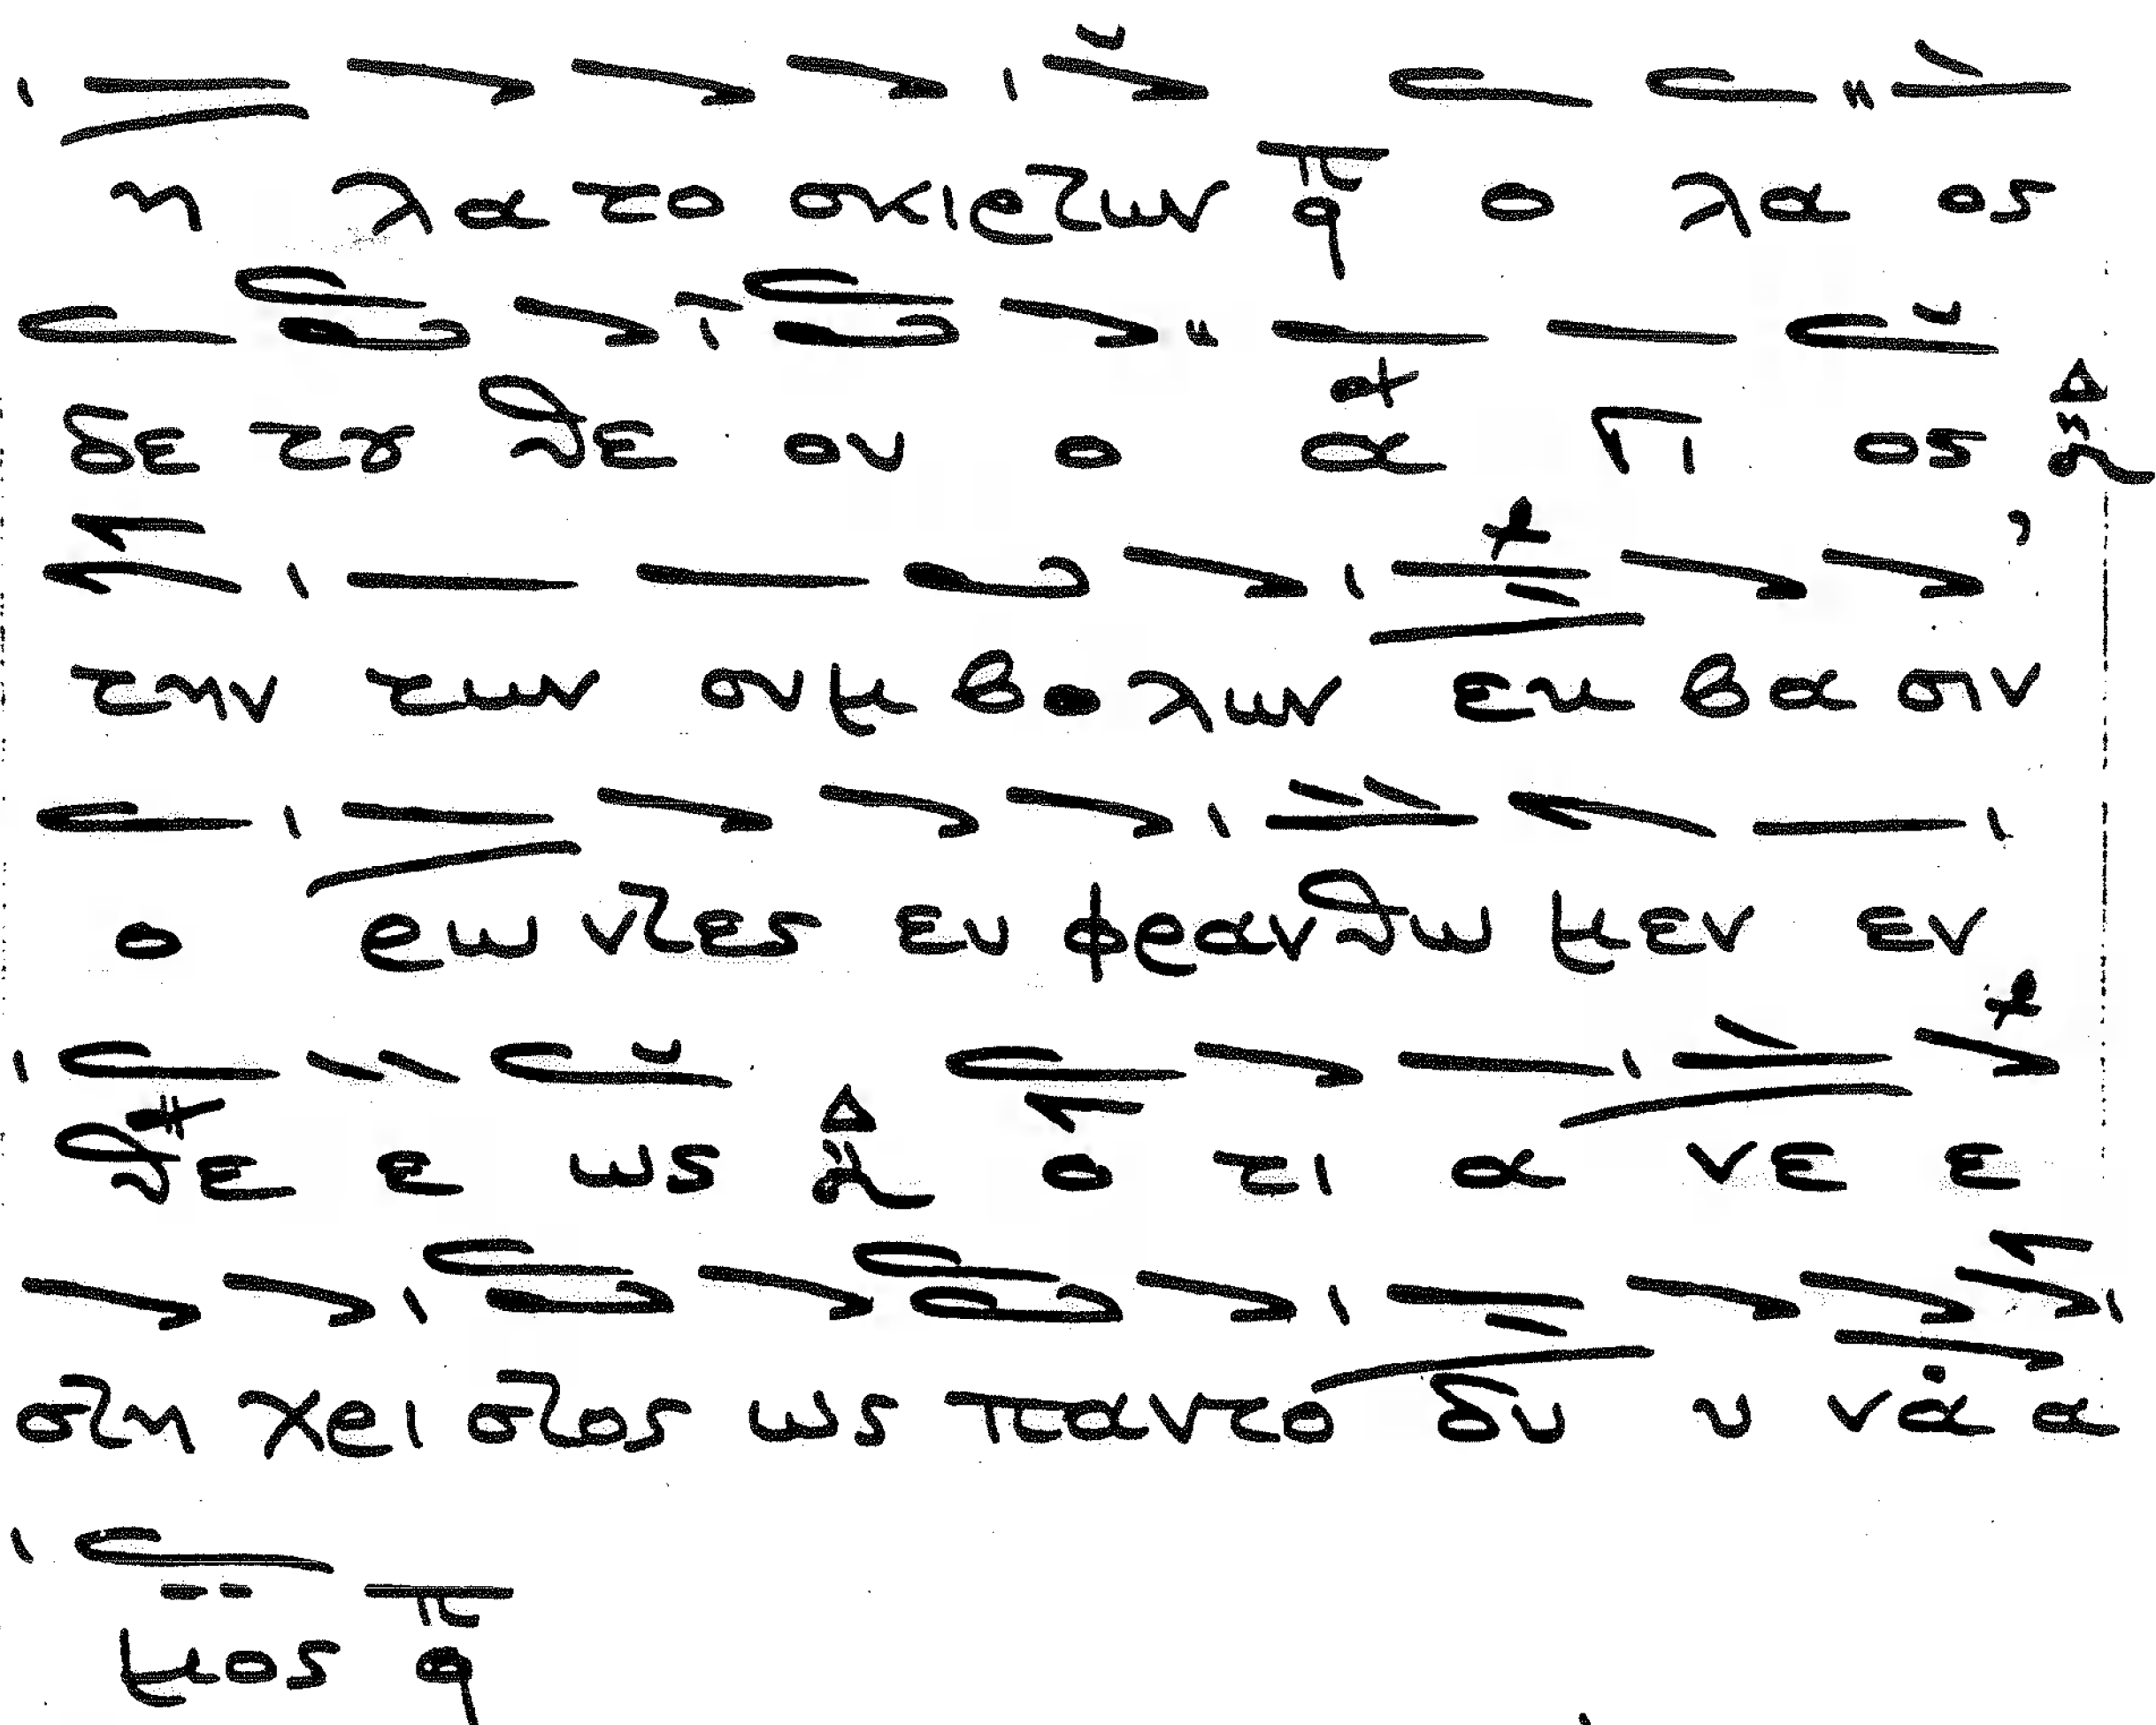 η λα το σκιρτων πα ο λα ος
δε του θε ου ο α γι ος Δι
την των συμ βο λων εκ βα σιν
ο ρω ντες ευ φρανθω μεν εν
θε ε ως Δι ο τι α νε ε
στη χρι στος ως παντο δυ υ να α
μος πα